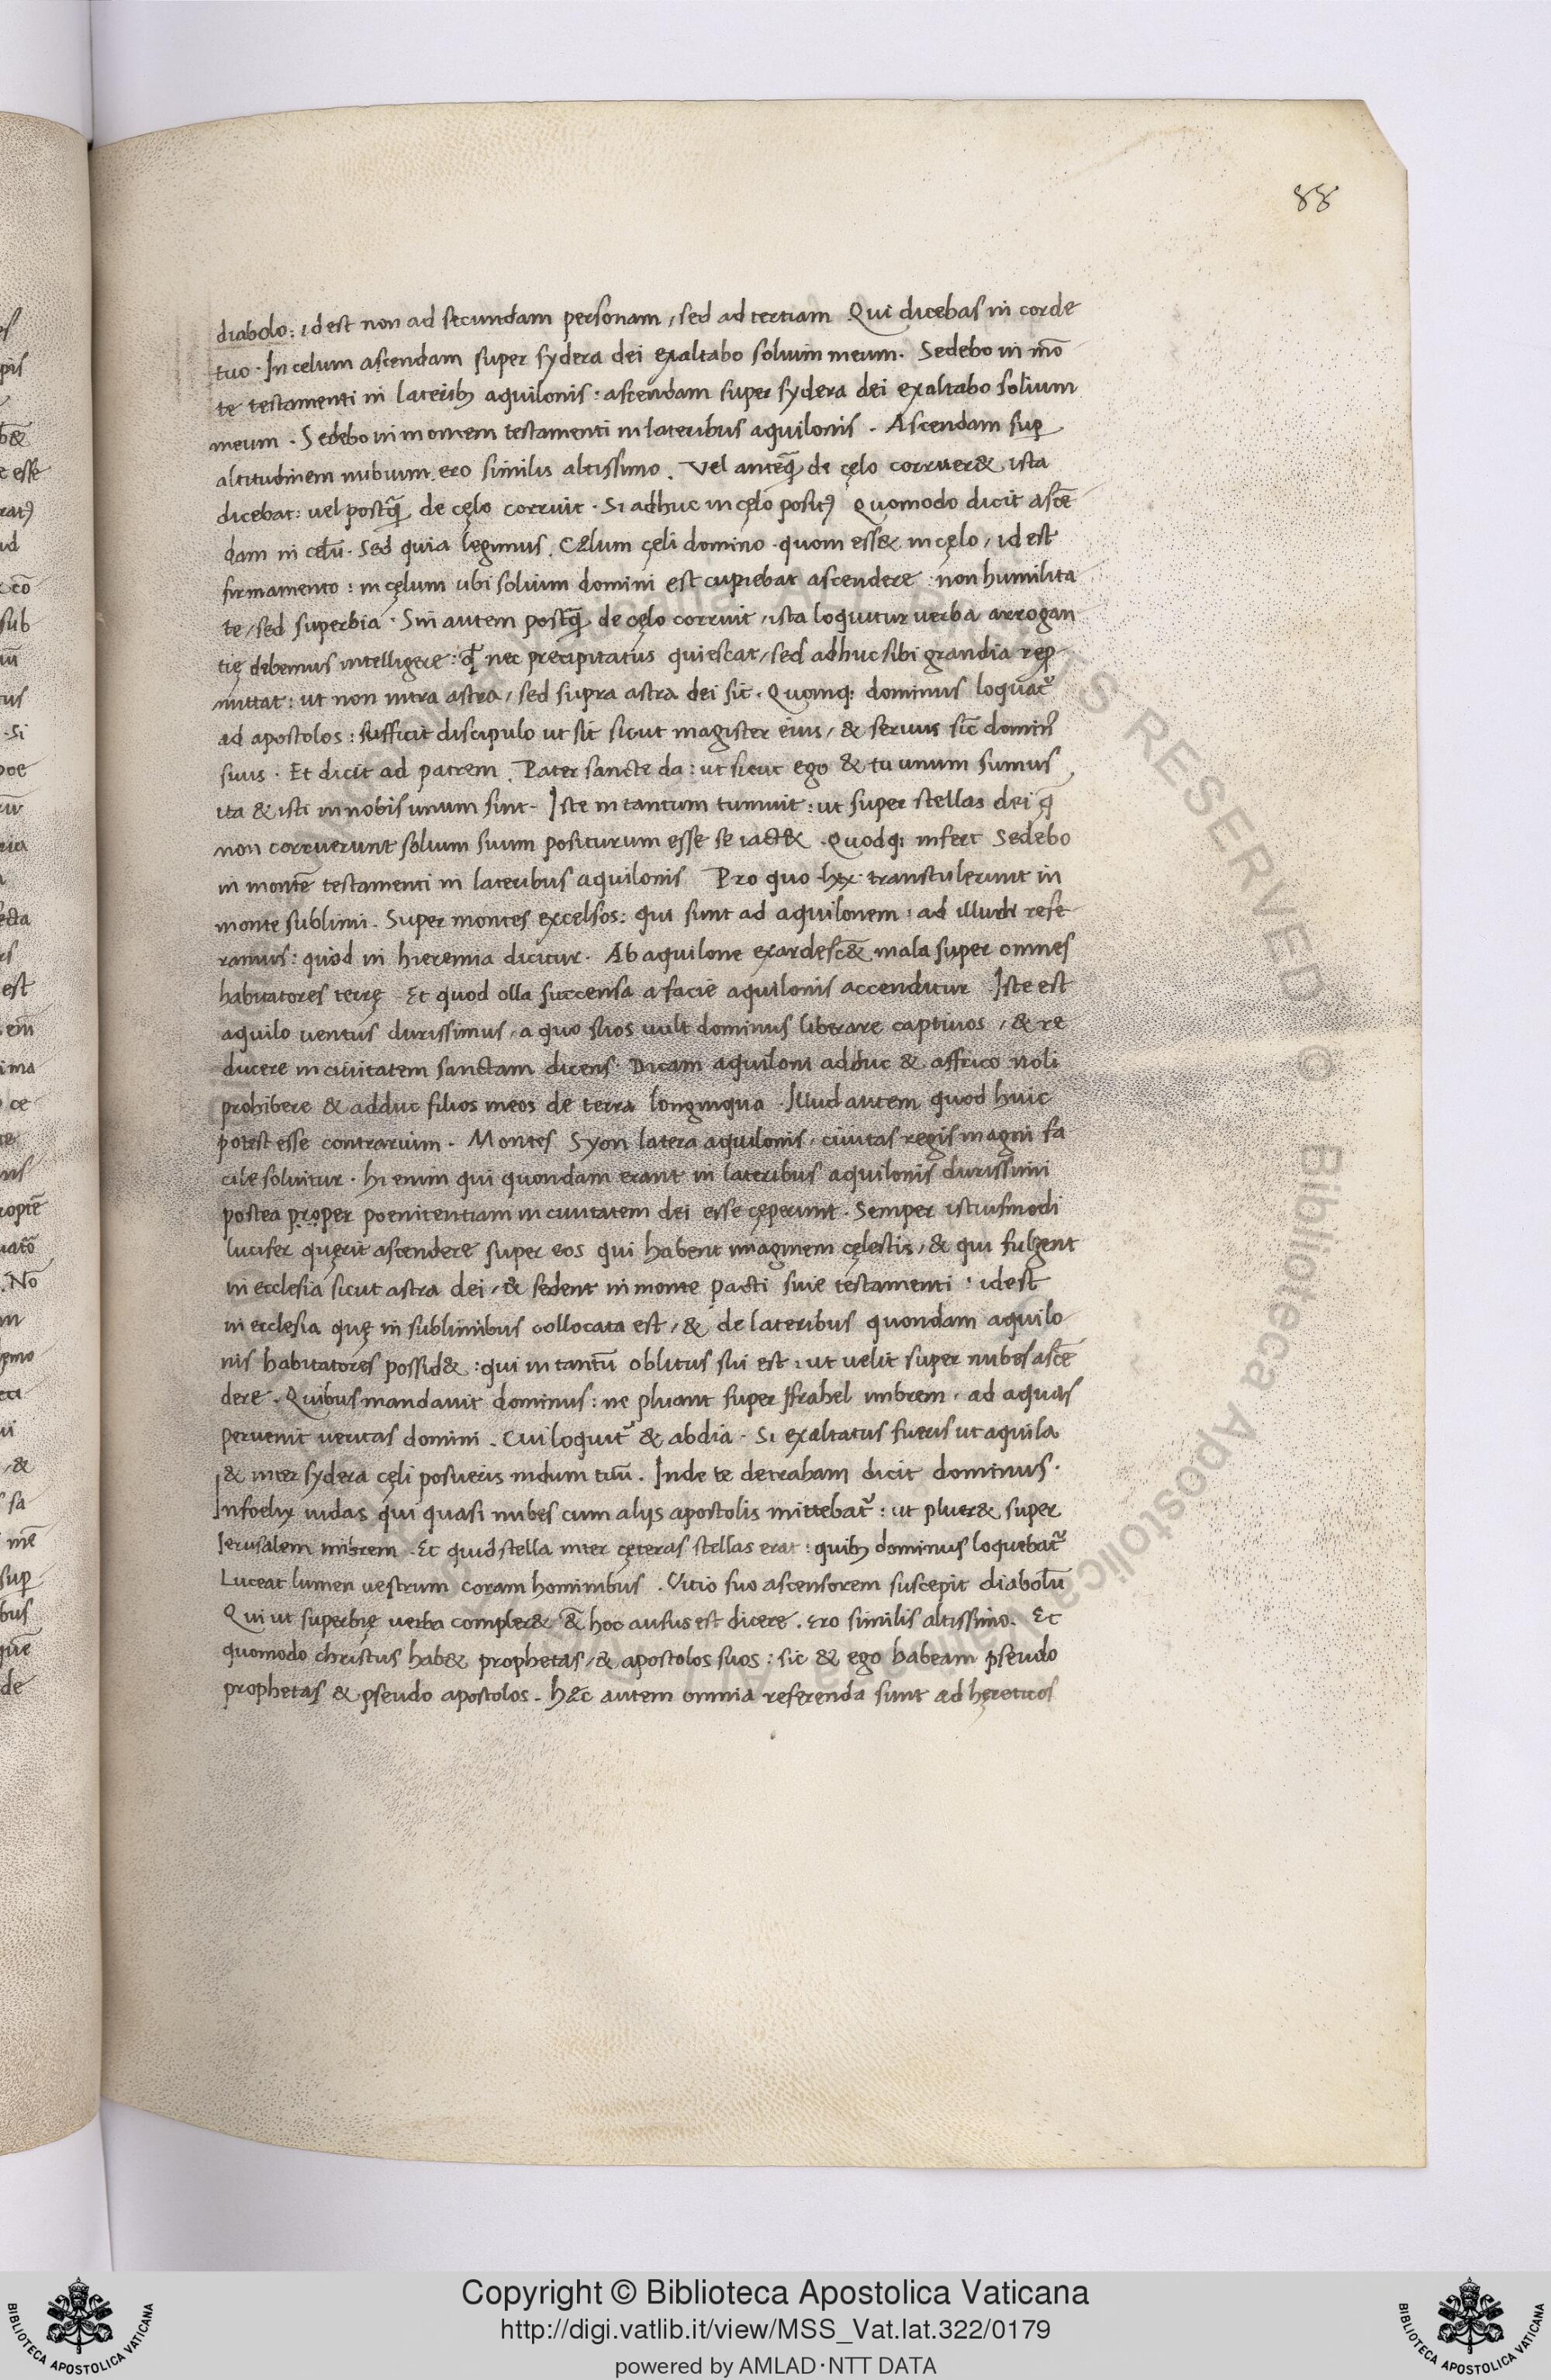 88
diabolo: idest non ad secundam personam, sed ad tertiam Qui dicebas in corde
tuo. In celum ascendam super sydera dei exaltabo solium meum. Sedebo in mō
te testamenti in laterib; aquilonis: ascendam super sydera dei exaltabo solium
meum. Sedebo in montem testamenti in lateribus aquilonis. Ascendam suꝑ
altitudinem nubium ero similis altissimo. Vel anteq̄ de cęlo corruer& ista
dicebat: uel postq̄ de cęlo corruit. Si adhuc in cęlo positꝰ Quomodo dicit ascē
dam in celū. Sed quia legimus. Cælum çeli domino. quom ess& in cęlo, id est
firmamento: in cęlum ubi solium domini est cupiebat ascendere: non humilita
te, sed superbia. Sin autem postq̄ de cęlo corruit, ista loquitur uerba arrogan
tię debemus intelligere: ꝙ nec precipitatus quiescat, sed adhuc sibi grandia reꝑ
mittat: ut non intra astra, sed supra astra dei sit. Quomq; dominus loquat᷑
ad apostolos: sufficit discipulo ut sit sicut magister eius, & seruus sic̄ dominꝰ
suus. Et dicit ad patrem. Pater sancte da: ut sicut ego & tu unum sumus,
ita & isti in nobis unum sint. Iste in tantum tumuit: ut super stellas dei q̄
non corruerunt solium suum positurum esse se iact&. Quodq; infert Sedebo
in montē testamenti in lateribus aquilonis Pro quo lxx transtulerunt in
monte sublimi. Super montes excelsos: qui sunt ad aquilonem: ad illud refe
ramus: quod in hieremia dicitur. Ab aquilone exardesc& mala super omnes
habitatores terrę Et quod olla succensa a facie aquilonis accenditur Iste est
aquilo uentus durissimus, a quo suos uult dominus liberare captiuos, & re
ducere in ciuitatem sanctam dicens. Dicam aquiloni adduc & affrico noli
prohibere & adduc filios meos de terra longinqua. Illud autem quod huic
potest esse contrarium. Montes Syon latera aquilonis, ciuitas regis magni fa
cile soluitur. hi enim qui quondam erant in lateribus aquilonis durissimi
postea proper poenitentiam in ciuitatem dei esse cęperunt. Semper istiusmodi
lucifer quęrit ascendere super eos qui habent imaginem cęlestis, & qui fulgent
in ecclesia sicut astra dei, & sedent in monte pacti siue testamenti: idest
in ecclesia quę in sublimibus collocata est, & de lateribus quondam aquilo
nis habitatores possid&: qui in tantū oblitus sui est: ut uelit super nubes ascē
dere. Quibus mandauit dominus: ne pluant super Israhel imbrem. ad aquas
peruenit ueritas domini. Cui loquit᷑ & abdia. Si exaltatus fueris ut aquila
& inter sydera cęli posueris nidum tuū. Inde te detraham dicit dominus.
Infoelix iudas qui quasi nubes cum alijs apostolis mittebat᷑: ut pluer& super
Ierusalem imbrem. Et quid stella inter cęteras stellas erat: quib; dominus loquebat᷑
Luceat lumen uestrum coram hominibus. Vitio suo ascensorem suscepit diabolū
Qui ut superbię uerba compler& &̄ hoc ausus est dicere. Ero similis altissimo. Et
quomodo christus hab& prophetas, & apostolos suos: sic & ego habeam pseudo
prophetas & pseudo apostolos. hæc autem omnia referenda sunt ad hęreticos
Copyright © Biblioteca Apostolica Vaticana
http://digi.vatlib.it/view/MSS_Vat.lat.322/0179
powered by AMLAD·NTT DATA